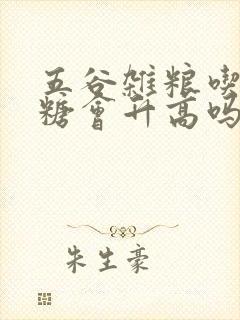 五谷杂粮喫
糖会升高吗
朱生豪